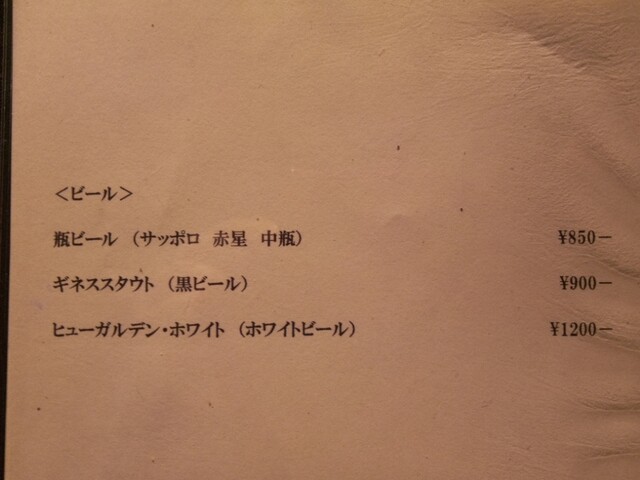 ＜ビール＞
瓶ビール （サッポロ 赤星 中瓶） ¥850－
ギネススタウト （黒ビール） ¥900－
ヒューガルデン・ホワイト （ホワイトビール） ¥1200－